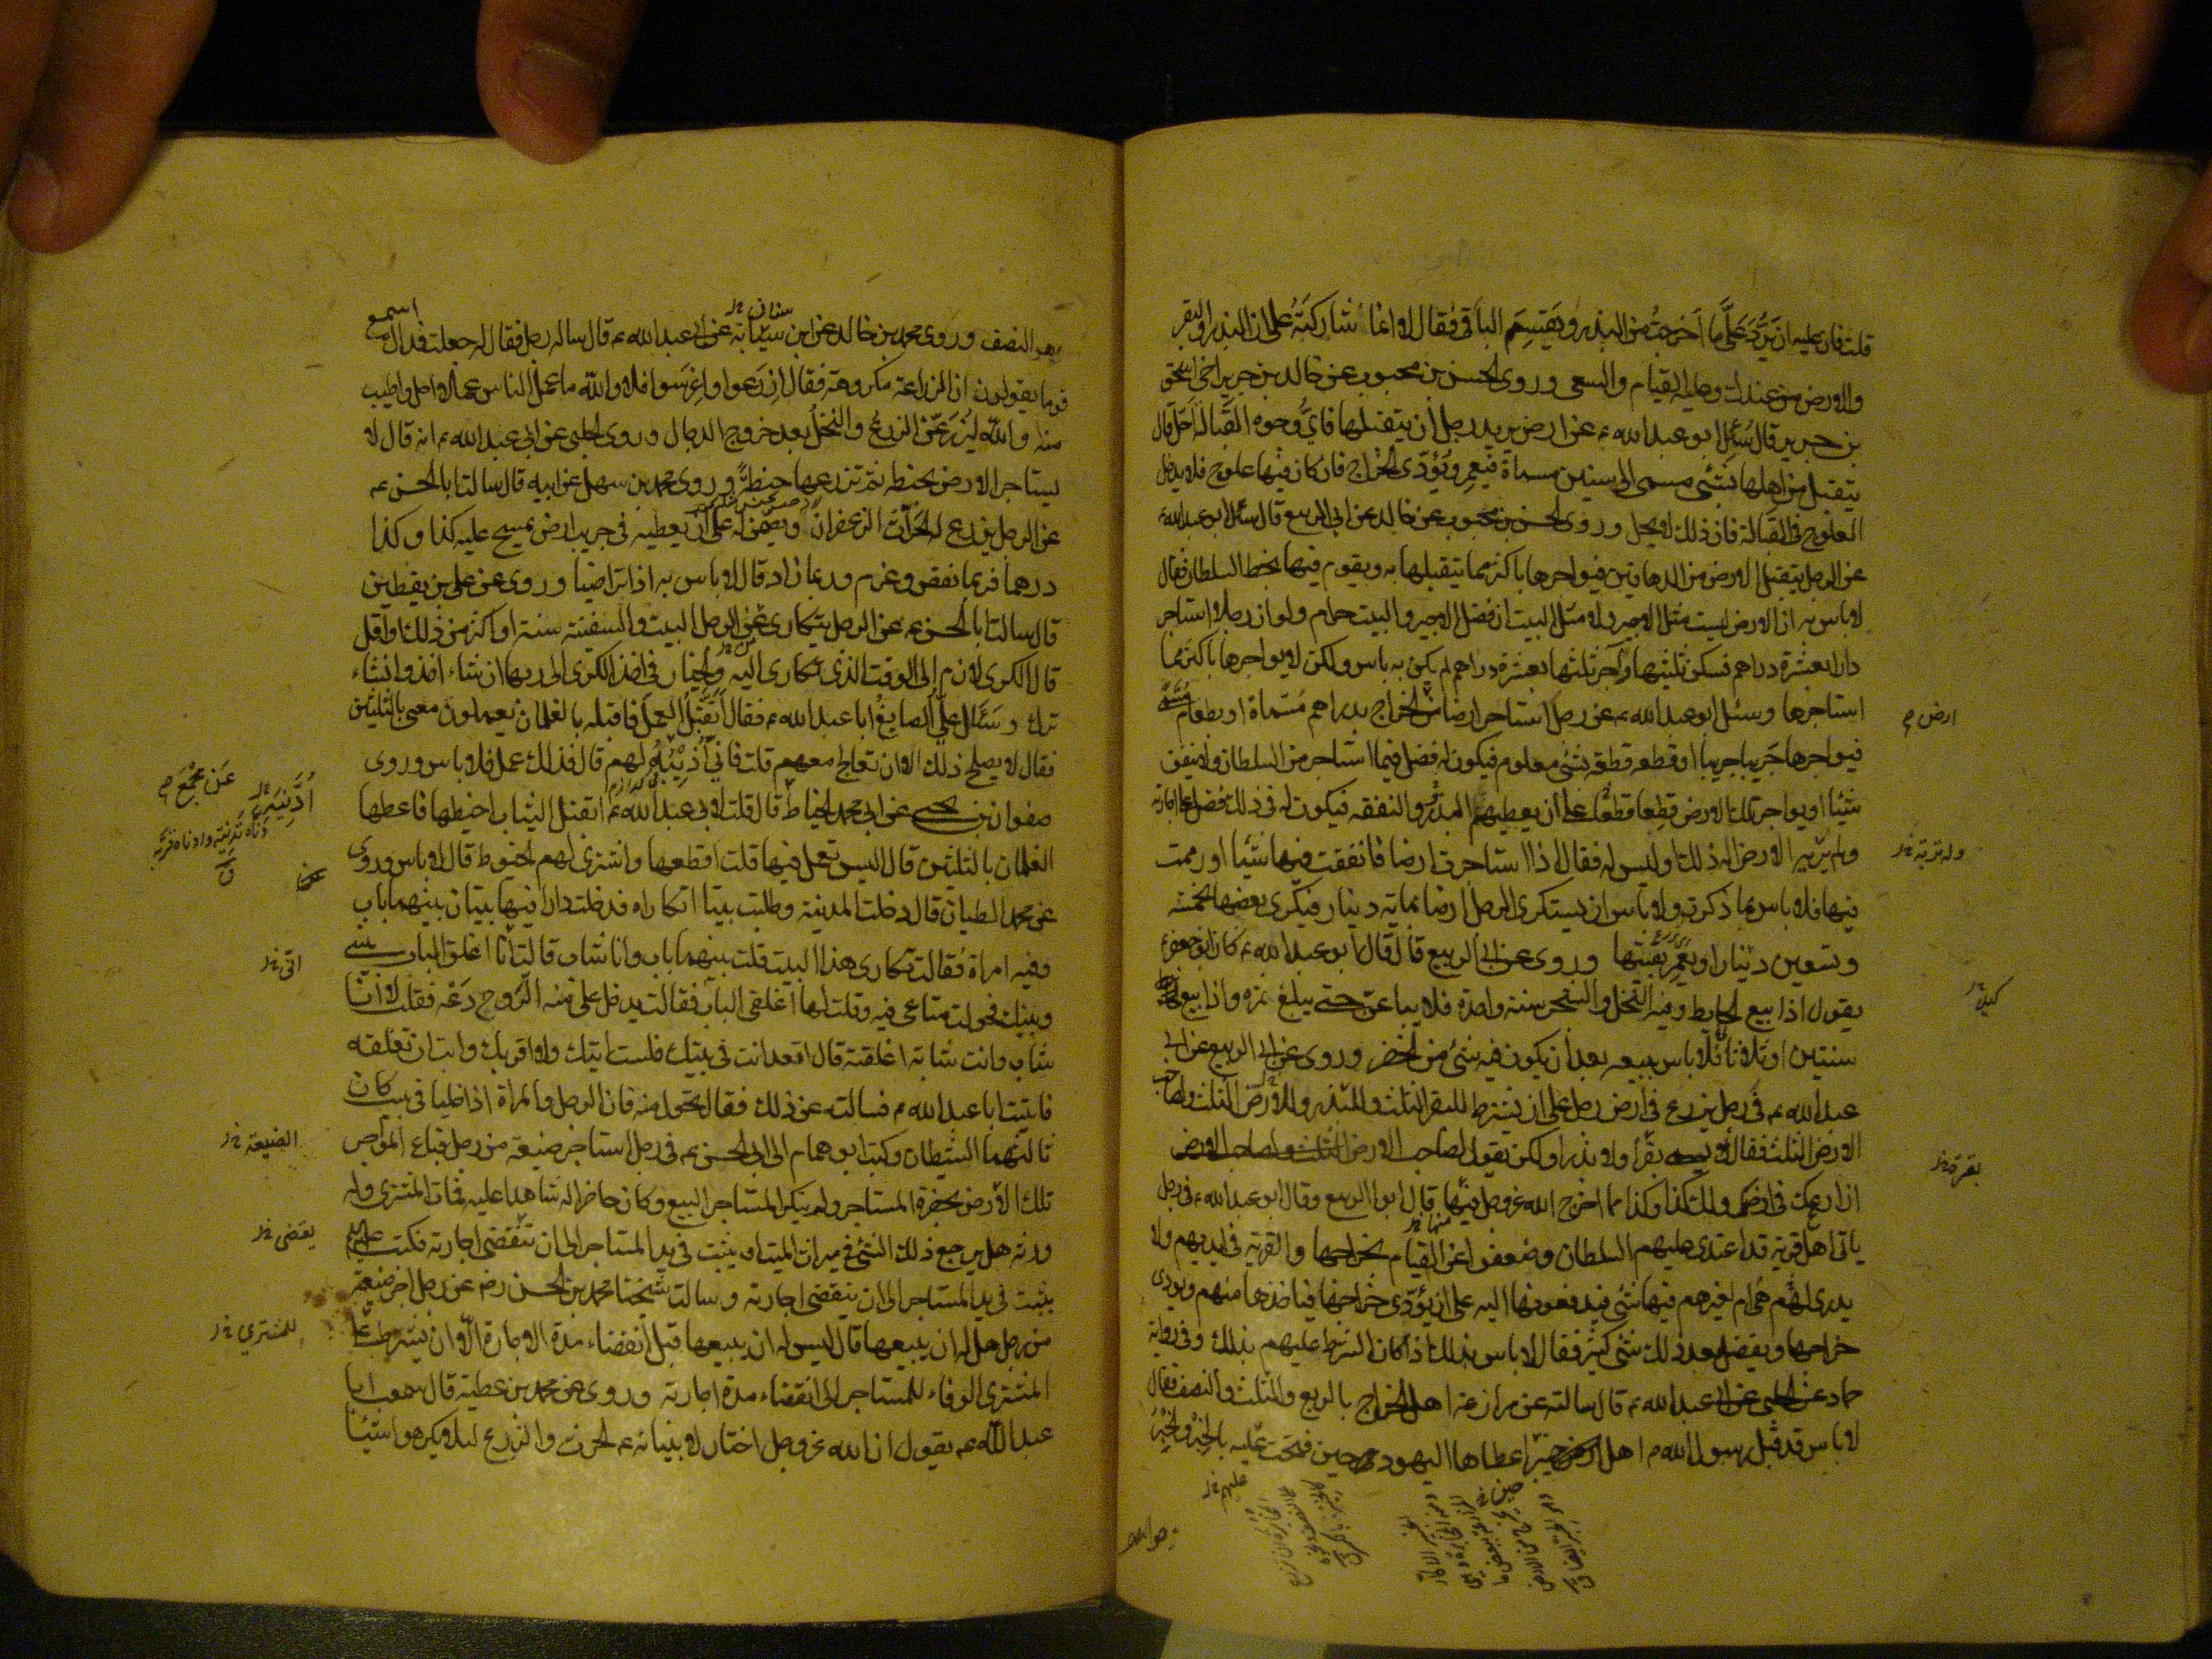 قلت فان عليه ان يردّ علىّ ما اخرجت من البذر ويقسم الباقى فقال لا انما شاركته على ان البذر والبقر
والارض من عندك وعليه القيام والسعى وروى الحسن بن محبوب عن خالد بن جرير اخى اسحق
بن جرير قال سئل ابو عبد الله ع عن ارض يريد رجل ان يتقبلها فاىّ وجوه القبالة احلّ قال
يتقبل من اهلها بشئ مسمى الى سنين مسماة فيعمر ويؤدّى الخراج فان كان فيها علوج فلا يدخل
العلوج فى القبالة فان ذلك لا يحل وروى الحسن بن محبوب عن خالد عن ابى الربيع قال سئل ابو عبد الله ع
عن الرجل يتقبل الارض من الدهاقين فيواجرها باكثر مما يتقبلها به ويقوم فيها بحظ السلطان فقال
لا باس به ان الارض ليست مثل الاجير ولا مثل البيت ان فضل الاجير والبيت حرام ولو ان رجلا استاجر
دارا بعشرة دراهم فسكن ثلثيها وآجر ثلثها بعشرة دراهم لم يكن به باس ولكن لا يواجرها باكثر مما
استاجرها وسئل ابو عبد الله ع عن رجل استاجر ارضا من الخراج بدراهم مسماة او بطعام مسمّى
فيواجرها جريبا جريبا او قطعه قطعه بشئ معلوم فيكون له فضل فيما استاجر من السلطان ولا ينفق
شيئا او يواجر تلك الارض قطعا قطعا على ان يعطيهم البذر والنفقه فيكون له فى ذلك فضل على اجارته
وله تربة الارض اله ذلك او ليس له فقال اذا استاجرت ارضا فانفقت فيها شيئا او رممت
فيها فلا باس بما ذكرت ولا باس ان يستكرى الرجل ارضا بماية دينار فيكرى بعضها بخمسة
وتسعين دينارا ويعمر بقيتها وروى عن ابى الربيع قال قال ابو عبد الله ع كان ابو جعفر ع
يقول اذا بيع الحايط وفيه النخل والشجر سنة واحدة فلا يباعن حتى يبلغ ثمره واذا بيع
سنتين او ثلاثا فلا باس ببيعه بعد ان يكون فيه شئ من الخضر وروى عن ابى الربيع عن ابى
عبد الله ع فى رجل يزرع فى ارض رجل على ان يشترط للبقر الثلث وللبذر وللارض الثلث ولصاحب
الارض الثلث فقال لا يسمى بقرا ولا بذرا ولكن يقول لصاحب الارض الثلث ولصاحب الارض
ازارعك فى ارضك ولك كذا وكذا مما اخرج الله عز وجل فيها قال ابو الربيع وقال ابو عبد الله ع فى رجل
ياتى اهل قرية قد اعتدى عليهم السلطان وضعفوا عن القيام بخراجها والقرية فى ايديهم ولا
يدرى لهم هى ام لغيرهم فيها شئ فيدفعونها اليه على ان يؤدّى خراجها فياخذها منهم ويودى
خراجها ويفضل بعد ذلك شئ كثير فقال لا باس بذلك اذا كان الشرط عليهم بذلك وفى رواية
حماد عن الحلبى عن ابى عبد الله ع قال سالته عن مزارعة اهل الخراج بالربع والثلث والنصف فقال
لا باس قد قبل رسول الله ص اهل خيبر اعطاها اليهود حين فتحت عليه بالخبر والخبر
ارض م
وله تربة خ
كيل خ
بقرة خ
منها خ
حين خ
عليهم خ
هو النصف وروى محمد بن خالد عن ابن سيّابة عن ابى عبد الله ع قال ساله رجل فقال له جعلت فداك اسمع
قوما يقولون ان الزراعة مكروهة فقال ازرعوا واغرسوا فلا والله ما عمل الناس عملا احل واطيب
منه والله ليزرعنّ الزرع والنخل بعد خروج الدجال وروى الحلبى عن ابى عبد الله ع انه قال لا
يستاجر الارض بحنطه ثم تزرعها حنطة وروى محمد بن سهل عن ابيه قال سالت ابا الحسن ع
عن الرجل يزرع له الحرّاث الزعفران ويضمن له على ان يعطيه فى جريب ارض يمسح عليه كذا وكذا
درهما فربما نقص وغرم وربما زاد قال لا باس به اذا تراضيا وروى عن على بن يقطين
قال سالت ابا الحسن ع عن الرجل يتكارى عن الرجل البيت والسفينة سنة او اكثر من ذلك او اقل
قال الكرى لازم الى الوقت الذى تكارى اليه والخيار فى اخذ الكرى الى ربها ان شاء اخذ وان شاء
ترك وسئل على الصايغ ابا عبد الله ع فقال اتقبل العمل فاقبله بالغلمان يعملون معى بالثلثين
فقال لا يصلح ذلك الا ان تعالج معهم قلت فانى اذيبه لهم قال فذلك عمل فلا باس وروى
صفوان بن يحيى عن ابى محمد الخياط قال قلت لابى عبد الله ع اتقبل الثياب اخيطها فاعطها
الغلمان بالثلثين قال اليس تعمل فيها قلت اقطعها واشترى لهم الخيوط قال لا باس وروى
عن محمد الطيار قال دخلت المدينة وطلبت بيتا اتكاراه فدخلت دارا فيها بيتان بينهما باب
وفيه امراة فقالت تكارى هذا البيت قلت بينهما باب وانا شاب قالت انا اغلق الباب بينى
وبينك فحولت متاعى فيه وقلت لها اغلقى الباب فقالت يدخل على منه الروح دعه فقلت لا انا
شاب وانت شابة اغلقيه قال اقعد انت فى بيتك فلست اتيك ولا اقربك وابت ان تغلقه
فاتيت ابا عبد الله ع فسالته عن ذلك فقال تحول منه فان الرجل والمراة اذا خليا فى بيت كان
ثالثهما الشيطان وكتب ابو همام الى ابى الحسن ع فى رجل استاجر ضيعة من رجل فباع المواجر
تلك الارض بحضرة المستاجر ولم ينكر المستاجر البيع وكان حاضرا له شاهدا عليه فمات المشترى وله
ورثه هل يرجع ذلك الشئ فى ميراث الميت او يثبت فى يد المستاجر الى ان تنقضى اجارته فكتب عليه السلم
يثبت فى يد المستاجر الى ان تنقضى اجارته وسالت شيخنا محمد بن الحسن رضه عن رجل اجر ضيعته
من رجل هل له ان يبيعها قال ليس له ان يبيعها قبل انقضاء مدة الاجارة الا ان يشترط على
المشترى الوفاء للمستاجر الى انقضاء مدة اجارته وروى عن محمد بن عطية قال سمعت ابا
عبد الله ع يقول ان الله عز وجل اختار لانبيائه ع الحرث والزرع ليلا يكرهوا شيئا
سنان خ
عن مجمع م
انى خ
الضيعة خ
يقضى خ
للمشترى خ